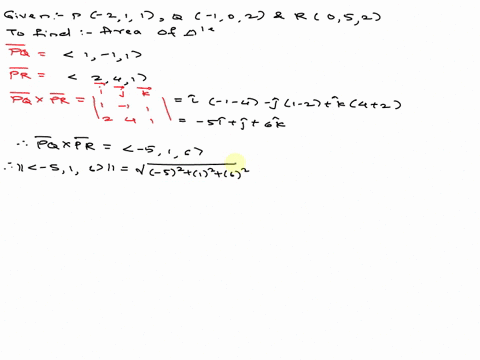 Given:- P (-2,1,1), Q (-1,0,2) & R (0,5,2)
To find:- Area of Δle
PQ = < 1, -1, 1>
PR = < 2, 4, 1>
i j k
PQ × PR = | 1 -1 1 | = î (-1-4) -ĵ (1-2) + k̂ (4+2)
2 4 1 = -5î + ĵ + 6k̂
∴ PQ × PR = < -5, 1, 6>
∴ || < -5, 1, 6> || = √(-5)²+(1)²+(6)²